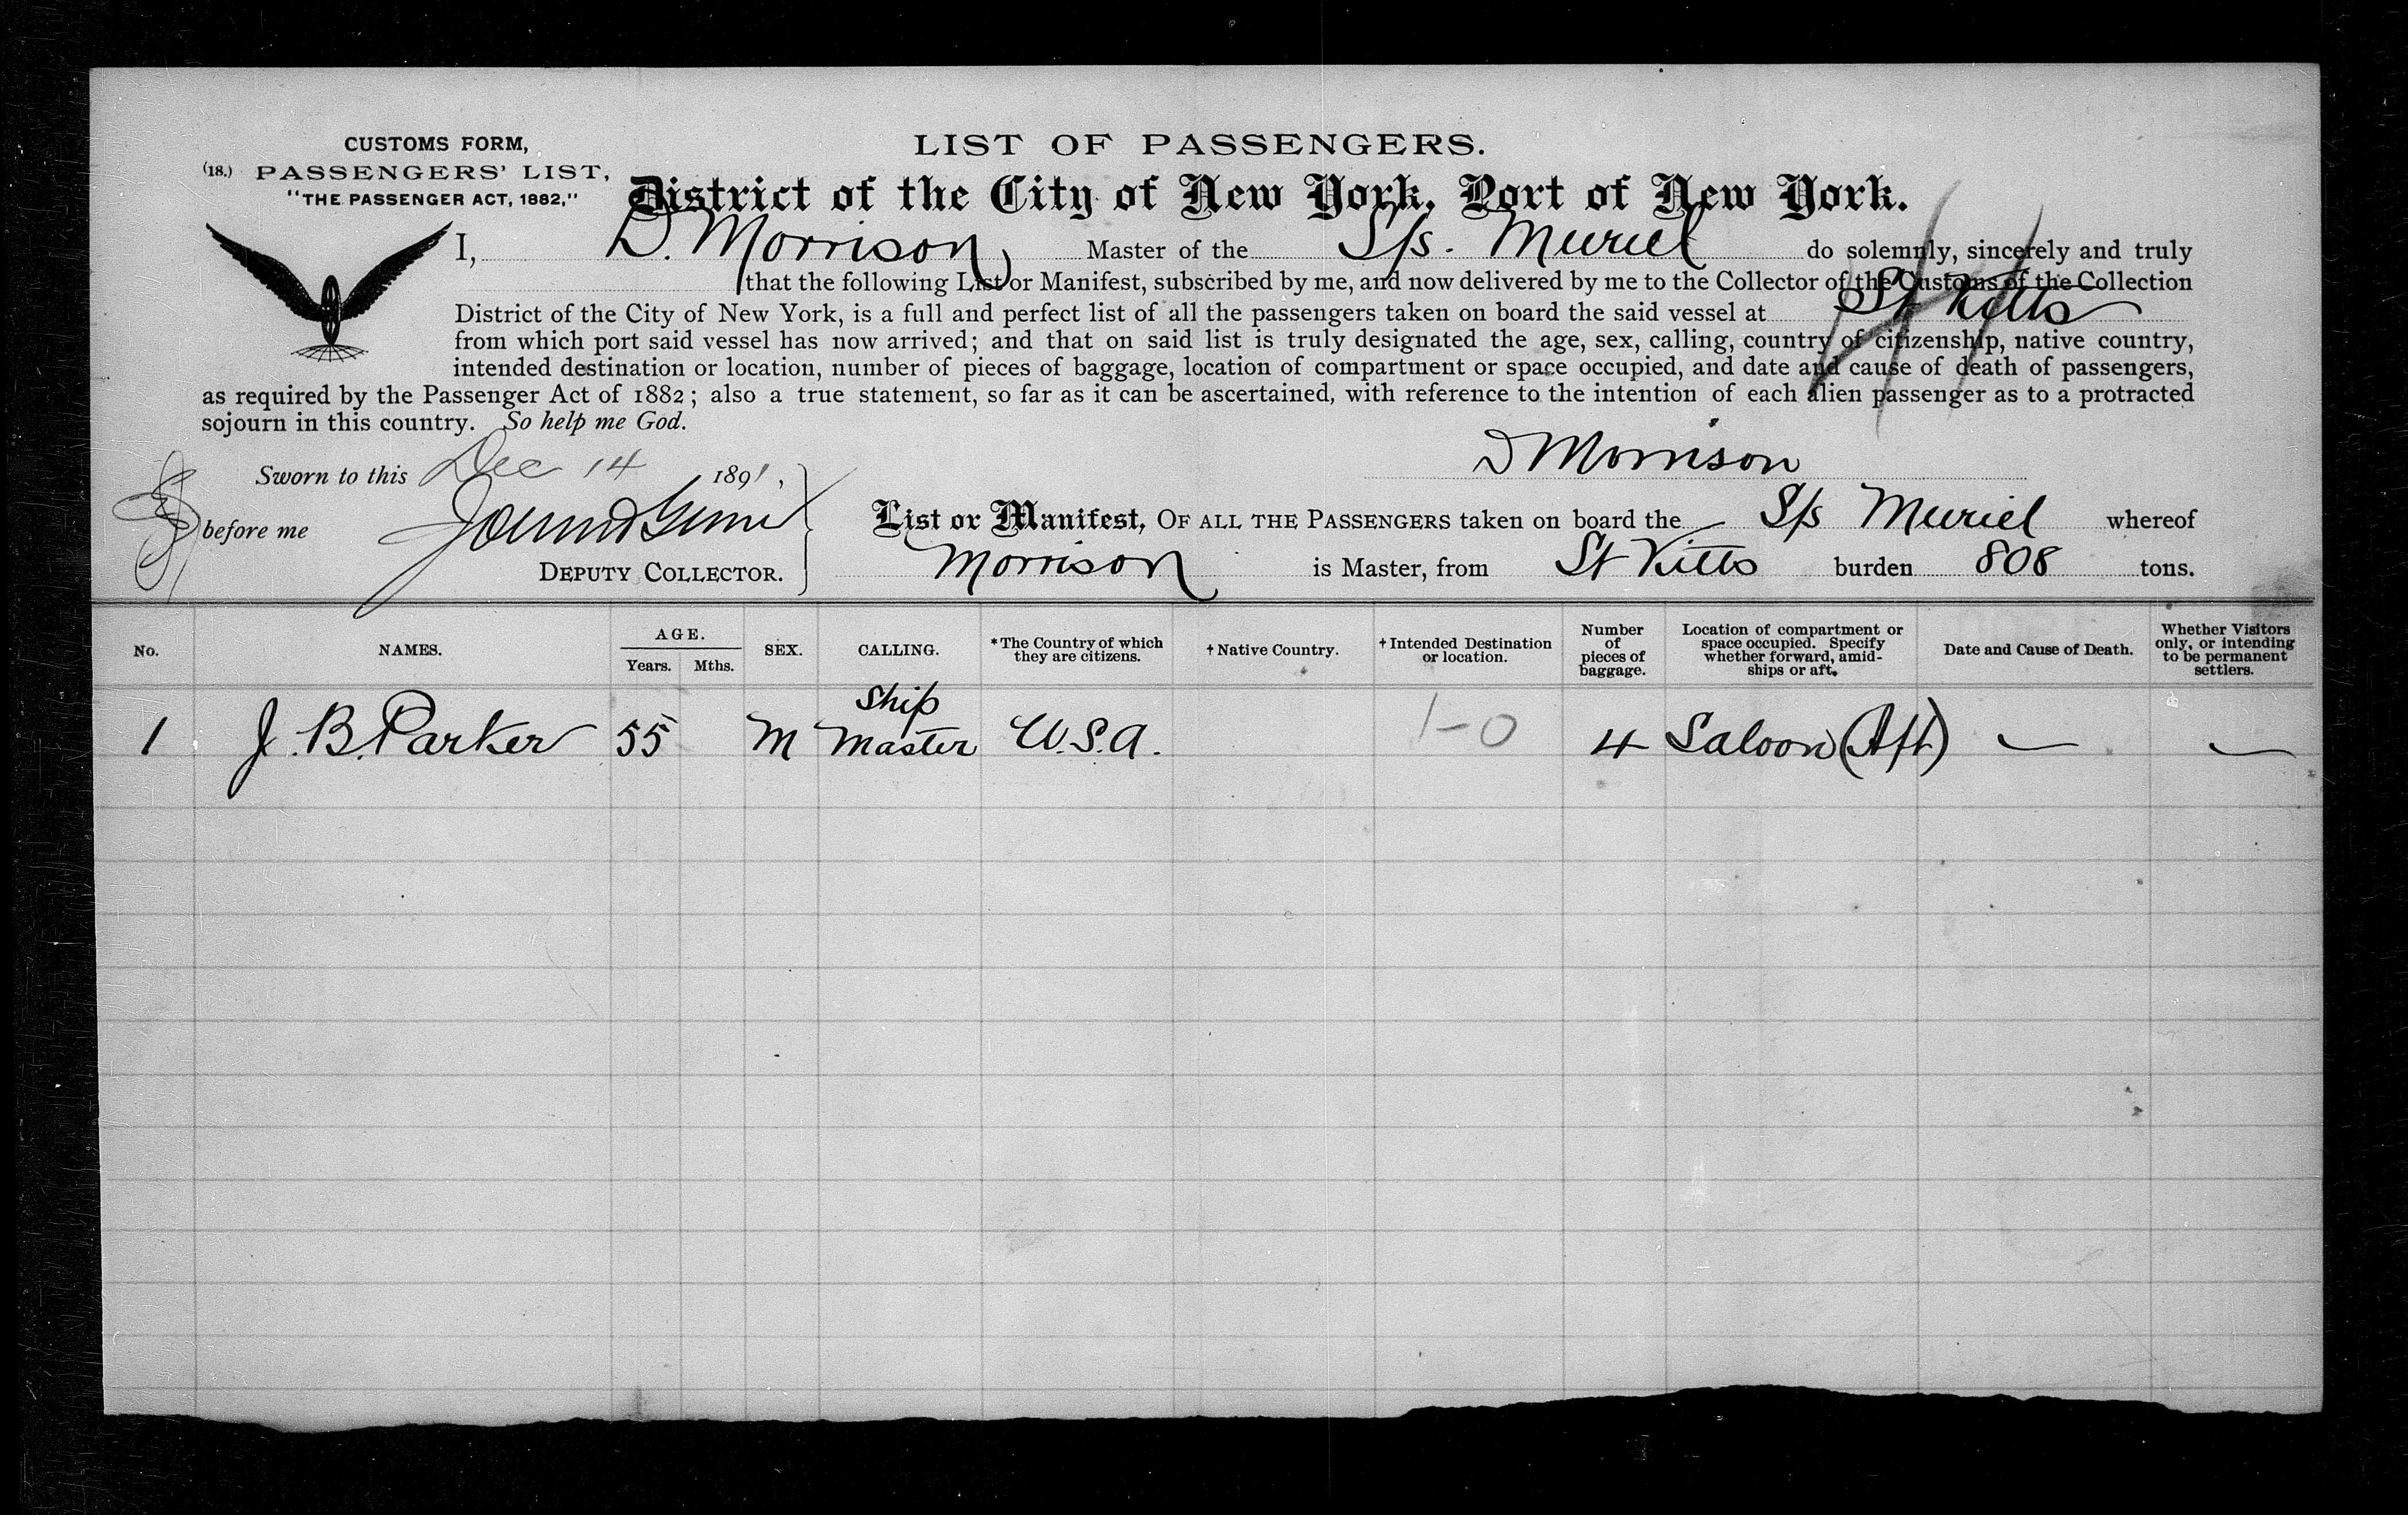 CUSTOMS FORM,
(18.) PASSENGERS' LIST,
"THE PASSENGER ACT, 1882,"
LIST OF PASSENGERS.
District of the City of New York, Port of New York.
I, D. Morrison Master of the S/s. Muriel do solemnly, sincerely and truly
that the following List or Manifest, subscribed by me, and now delivered by me to the Collector of the Customs of the Collection
District of the City of New York, is a full and perfect list of all the passengers taken on board the said vessel at St Kitts
from which port said vessel has now arrived; and that on said list is truly designated the age, sex, calling, country of citizenship, native country,
intended destination or location, number of pieces of baggage, location of compartment or space occupied, and date and cause of death of passengers,
as required by the Passenger Act of 1882; also a true statement, so far as it can be ascertained, with reference to the intention of each alien passenger as to a protracted
sojourn in this country. So help me God.
D Morrison
Sworn to this Dec 14 1891,
before me
DEPUTY COLLECTOR.
List or Manifest, OF ALL THE PASSENGERS taken on board the S/s Muriel whereof
Morrison is Master, from St Kitts burden 808 tons.
No. NAMES. AGE. Years. Mths. SEX. CALLING. *The Country of which they are citizens. †Native Country. †Intended Destination or location. Number of pieces of baggage. Location of compartment or space occupied. Specify whether forward, amid-ships or aft. Date and Cause of Death. Whether Visitors only, or intending to be permanent settlers.
1 J. B. Parker 55 M Ship Master U.S.A. 1-0 4 Saloon (Aft) — —